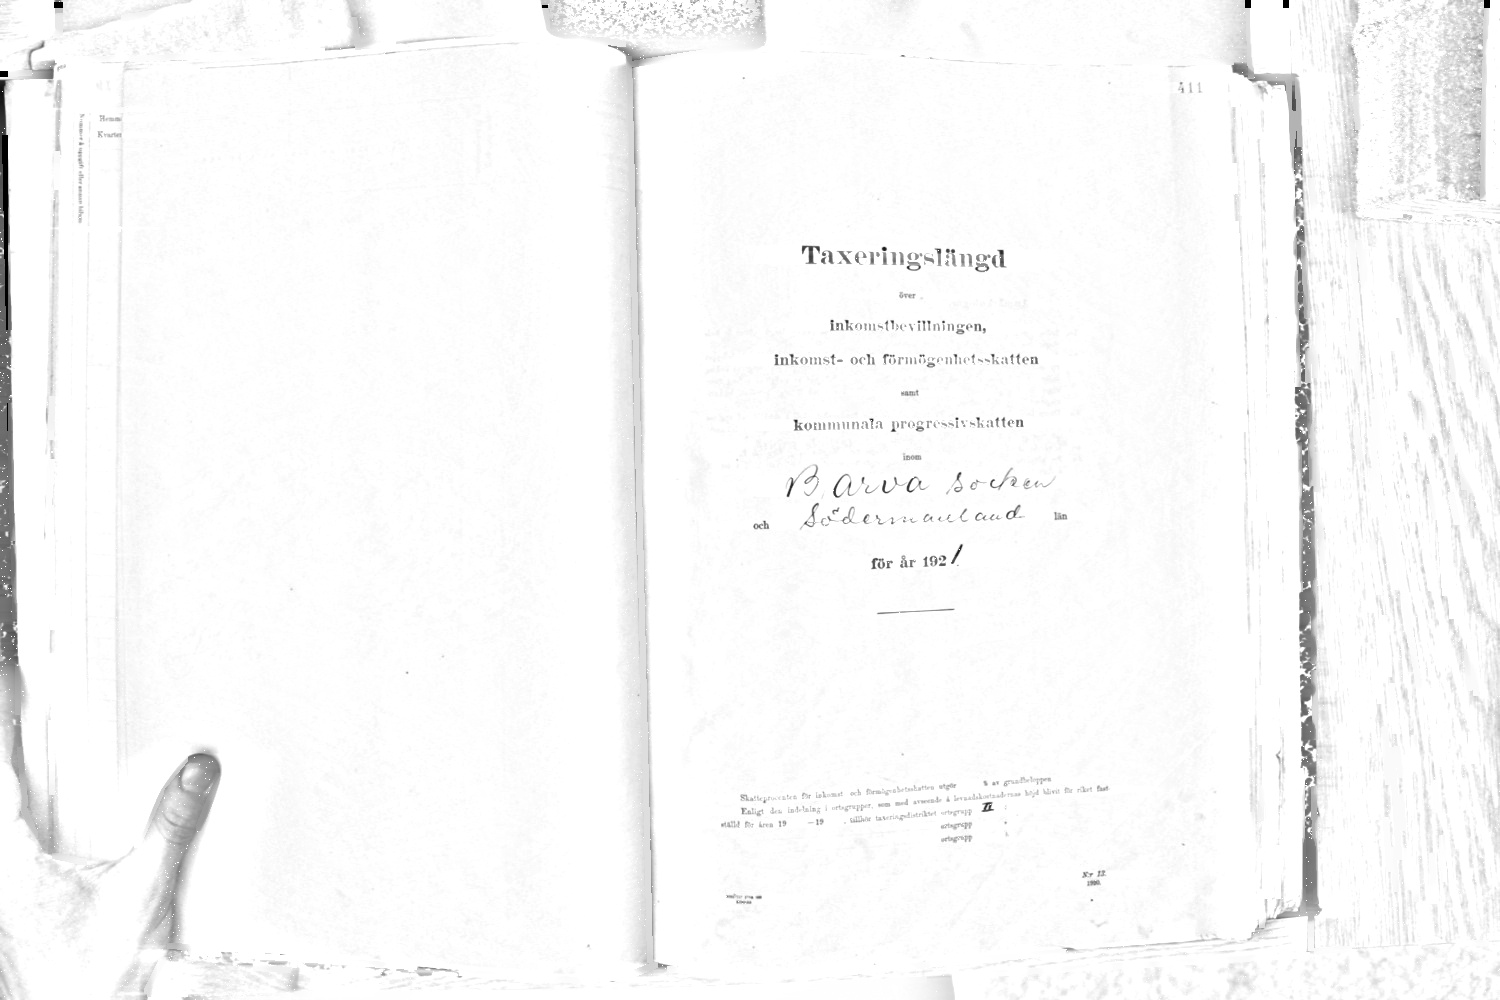 411
Nummer å uppgift eller annan bilaga
Hemm
Kvarter
Taxeringslängd
över
inkomstbevillningen,
inkomst- och förmögenhetsskatten
samt
kommunala progressivskatten
inom
Barva socken
och Södermanland län
för år 1921
Skatteprocenten för inkomst- och förmögenhetsskatten utgör % av grundbeloppen
Enligt den indelning i ortsgrupper, som med avseende å levnadskostnadernas höjd blivit för riket fast-
ställd för åren 19 —19 , tillhör taxeringsdistriktet ortsgrupp II ;
ortsgrupp
ortsgrupp
N:r 13.
1920.